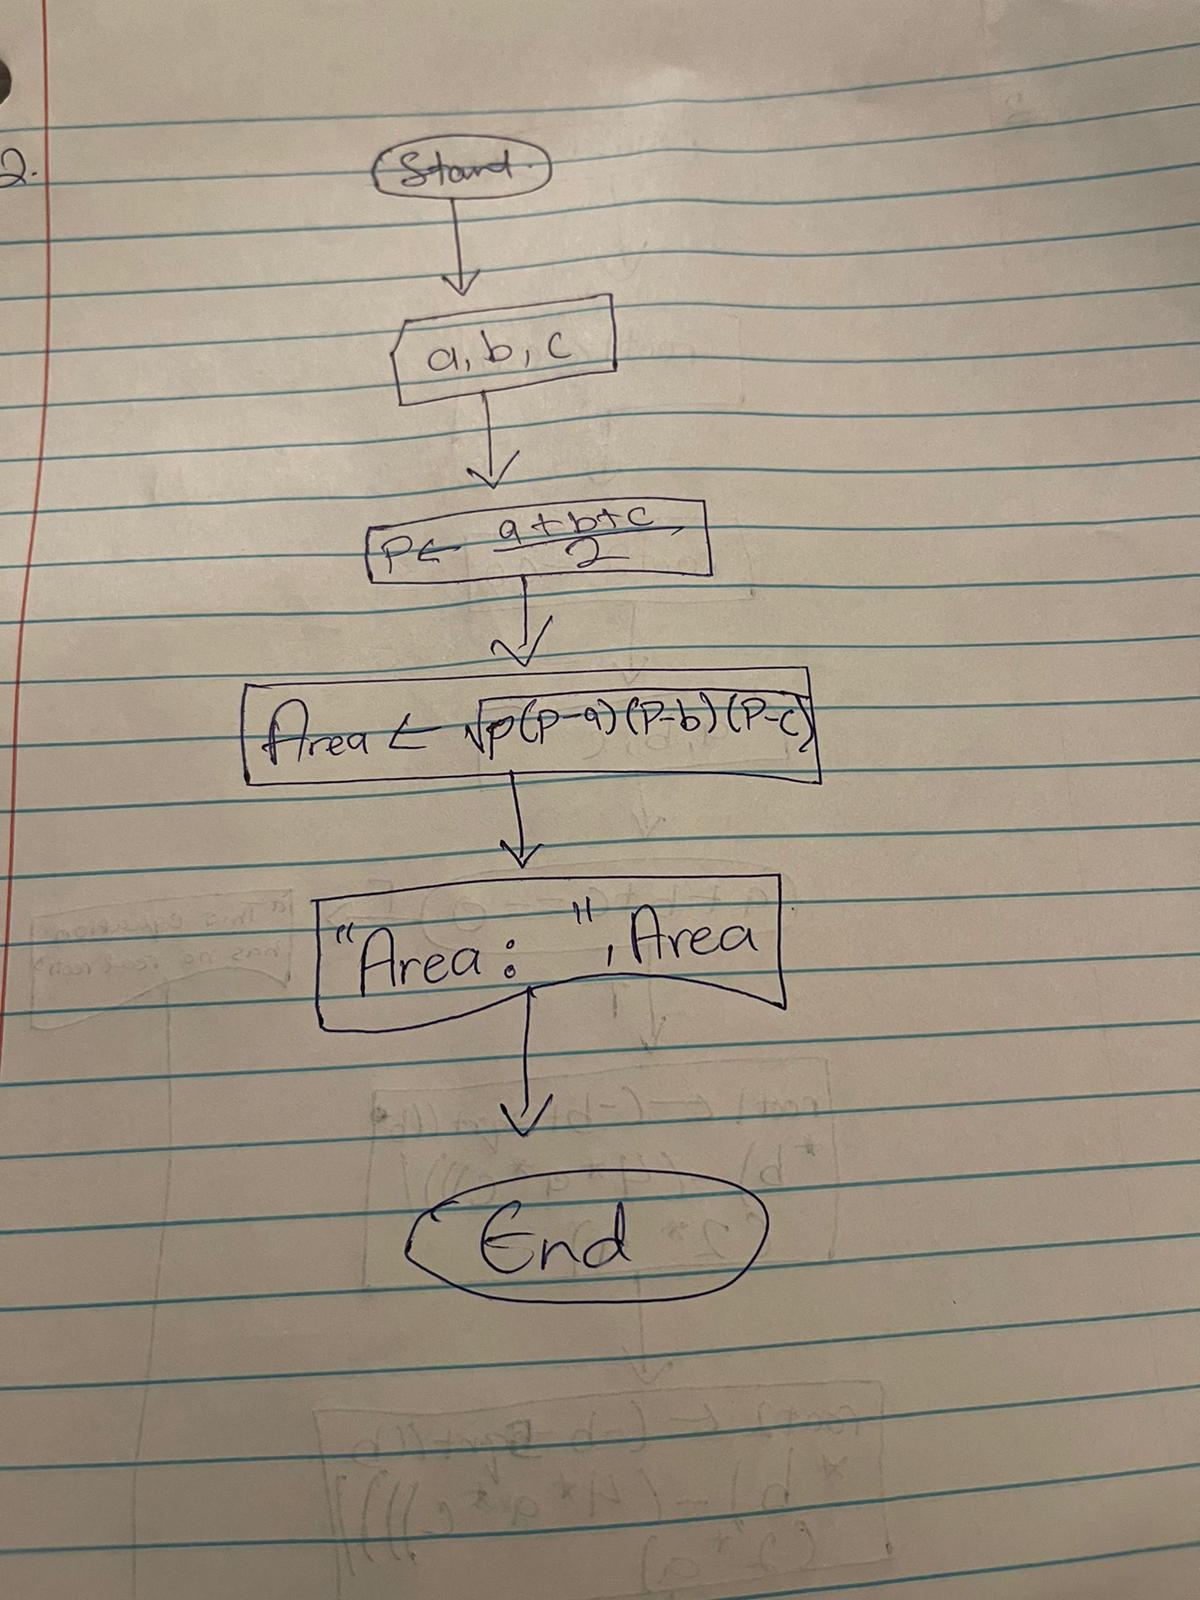 2.
Start
a, b, c
P ← a+b+c
2
Area ← √p(p-a)(p-b)(p-c)
"Area: ", Area
End